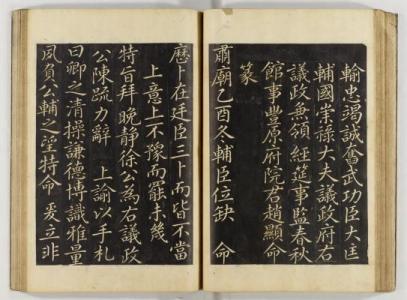 輸忠竭誠奮武功臣大匡
輔國崇祿大夫議政府右
議政兼領 經筵事監春秋
館事豐原府院君趙顯命
篆
肅廟乙酉冬輔臣位缺 命
歷卜在廷臣三卜而皆不當
上意上不豫而罷未幾
特旨拜晚靜徐公爲右議政
公陳疏力辭 上諭以手札
曰卿之清操謙德博識雅量
夙負公輔之望特命爰立非